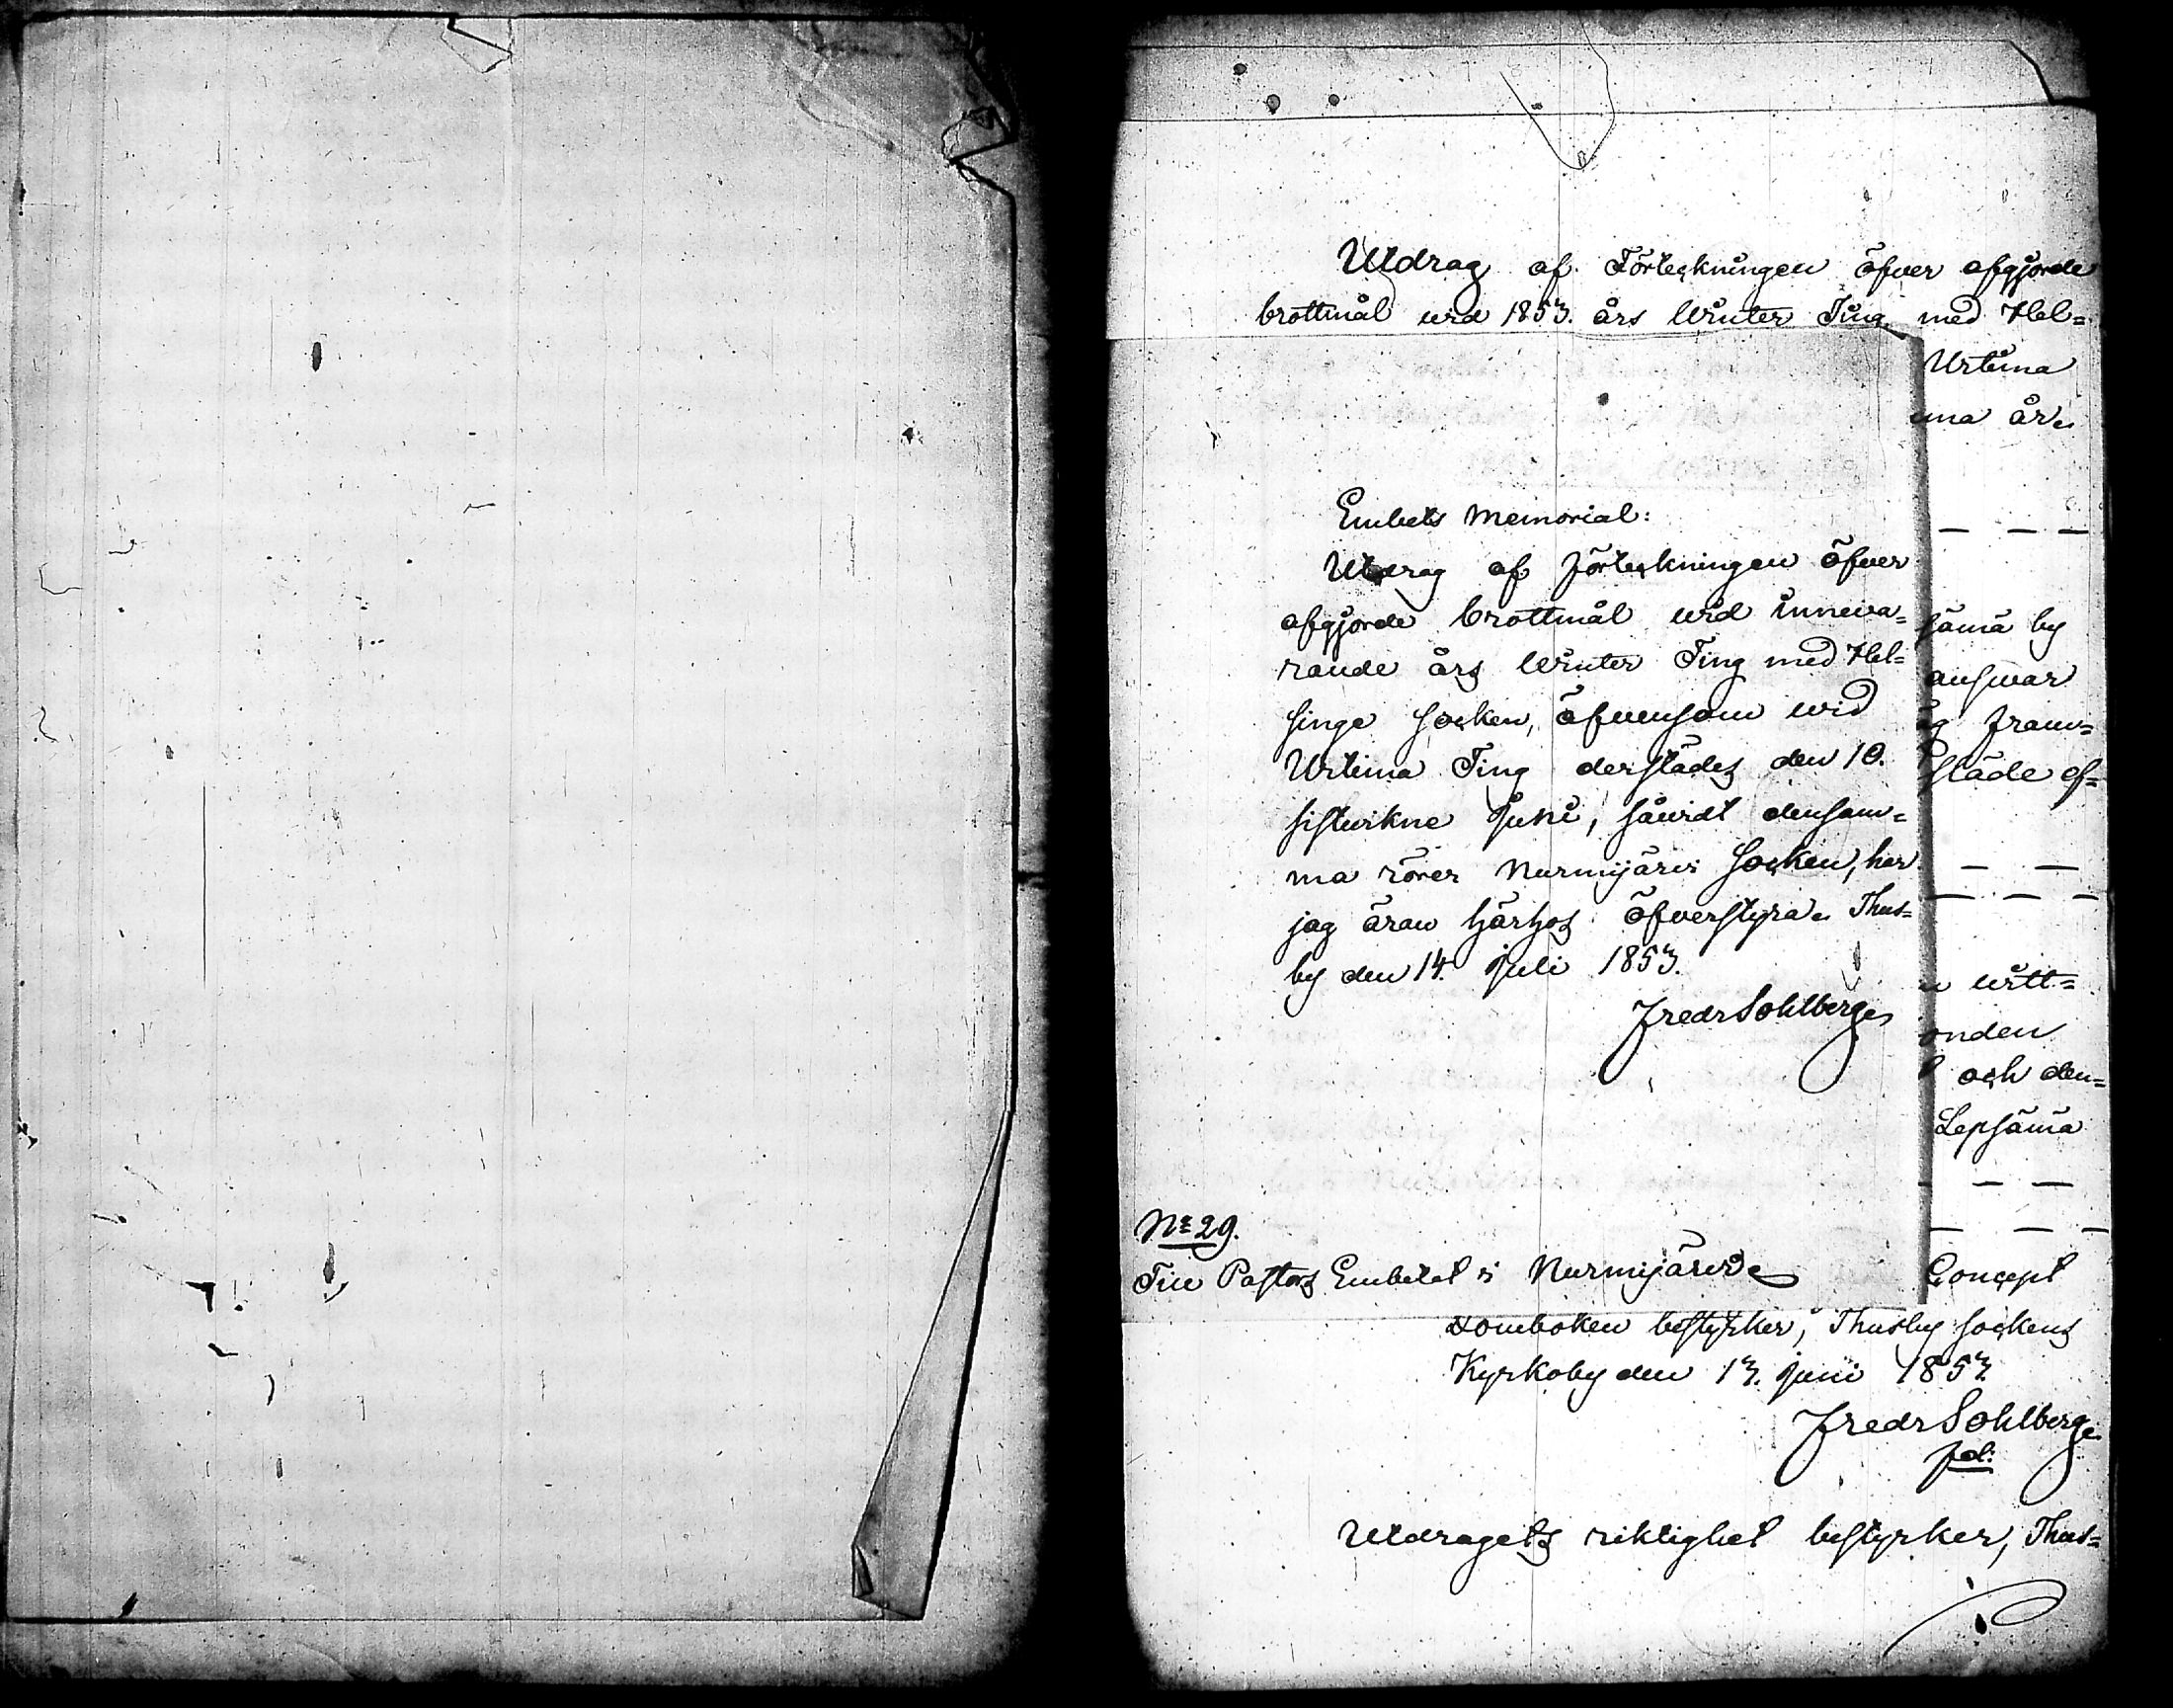 Utdrag af Förteckningen öfver afgjorde
brottmål wid 1853. års Winter Ting med Hel=
Urtima
ma år.
Embets Memorial:
Utdrag af förteckningen öfver
afgjorde brottmål wid inneva=
rande års Winter Ting med Hel=
singe Socken, äfvensom wid
Urtima Ting derstädes den 10.
sistwikne Juni, såvidt densam=
ma rörer Nurmijärvi Socken, har
jag äran härhos öfverstyra. Thus=
by den 14. Juli 1853.
Fredr Sohlberg
jämä by
answar
fram=
städe ef=
witt=
onden
och den=
Lepsämä
No 29.
Till Pastors Embetet i Nurmijärvi
Concept
Domboken bestyrker, Thusby Sockens
Kyrkoby den 13. Juni 1853.
Fredr Sohlberg
Utdragets riktighet bestyrker, Thus=